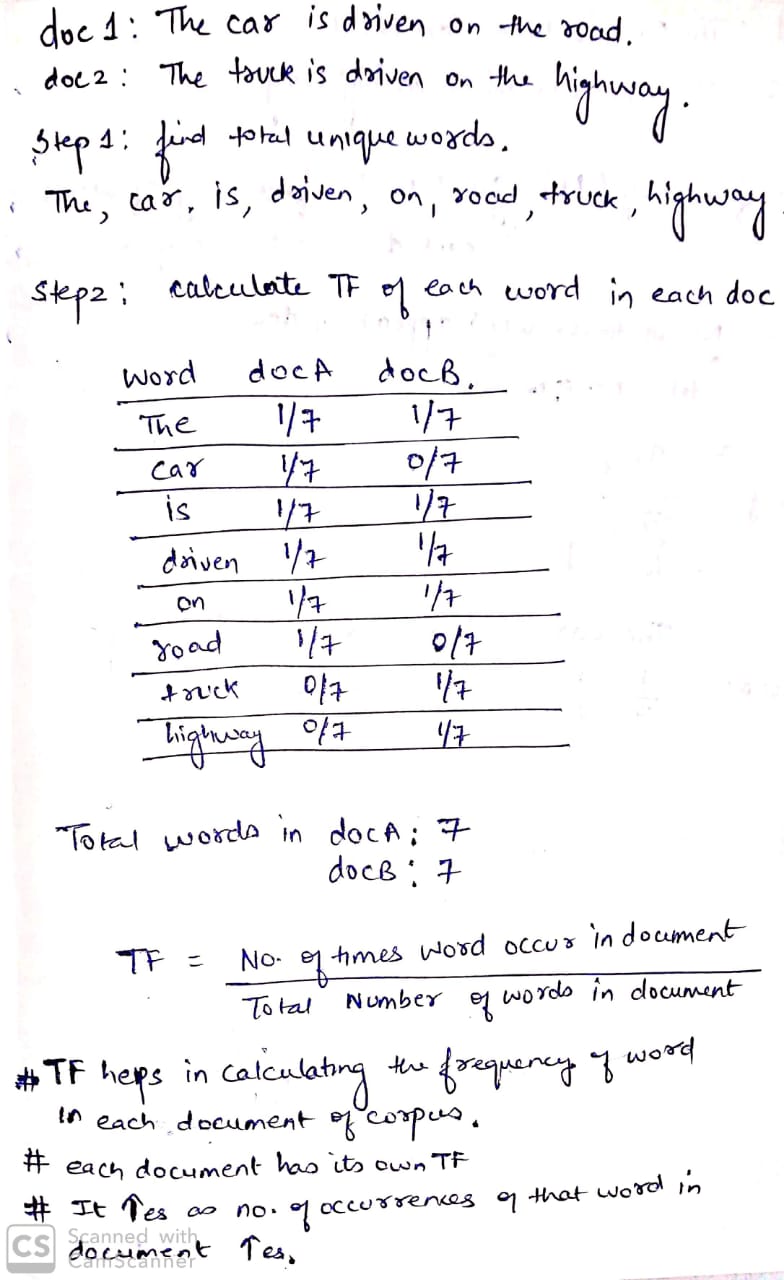 doc 1: The car is driven on the road.
doc 2: The truck is driven on the highway.
Step 1: find total unique words.
The, car, is, driven, on, road, truck, highway
Step 2: calculate TF of each word in each doc
Word docA docB.
The 1/7 1/7
car 1/7 0/7
is 1/7 1/7
driven 1/7 1/7
on 1/7 1/7
road 1/7 0/7
truck 0/7 1/7
highway 0/7 1/7
Total words in docA: 7
docB: 7
TF = No. of times word occur in document
Total Number of words in document
# TF heps in calculating the frequency of word
in each document of corpus.
# each document has its own TF
# It ↑es as no. of occurrences of that word in
document ↑es.
CS Scanned with
CamScanner